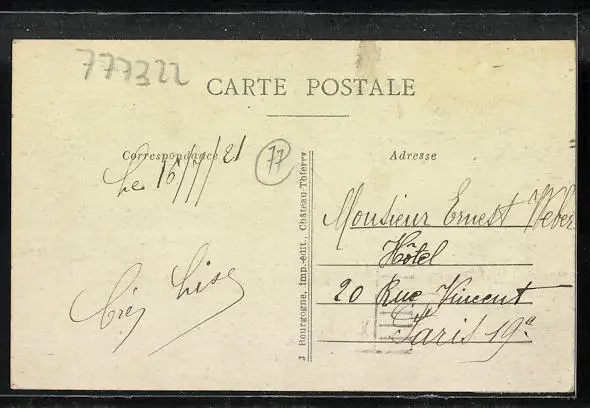 777322
CARTE POSTALE
Correspondance
Le 16/7/21
77
Adresse
J Bourgogne, imp.-édit., Château-Thierry
Monsieur Ernest Weber
Hôtel
20 Rue Vincent
Paris 19e
Lise